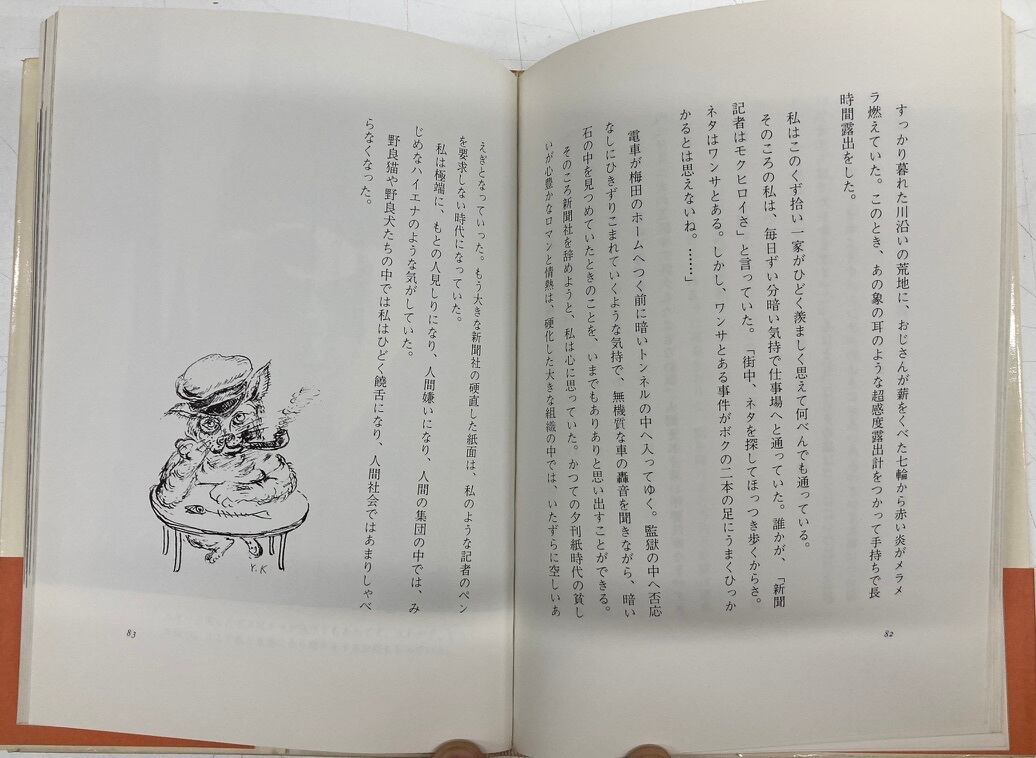 すっかり暮れた川沿いの荒地に、おじさんが薪をくべた七輪から赤い炎がメラメ
ラ燃えていた。このとき、あの象の耳のような超感度露出計をつかって手持ちで長
時間露出をした。
私はこのくず拾い一家がひどく羨ましく思えて何べんでも通っている。
そのころの私は、毎日ずい分暗い気持で仕事場へと通っていた。誰かが、「新聞
記者はモクヒロイさ」と言っていた。「街中、ネタを探してほっつき歩くからさ。
ネタはワンサとある。しかし、ワンサとある事件がボクの二本の足にうまくひっか
かるとは思えないね。……」
電車が梅田のホームへつく前に暗いトンネルの中へ入ってゆく。監獄の中へ否応
なしにひきずりこまれていくような気持で、無機質な車の轟音を聞きながら、暗い
石の中を見つめていたときのことを、いまでもありありと思い出すことができる。
そのころ新聞社を辞めようと、私は心に思っていた。かつての夕刊紙時代の貧し
いが心豊かなロマンと情熱は、硬化した大きな組織の中では、いたずらに空しいあ
82
えぎとなっていった。もう大きな新聞社の硬直した紙面は、私のような記者のペン
を要求しない時代になっていた。
私は極端に、もとの人見しりになり、人間嫌いになり、人間の集団の中では、み
じめなハイエナのような気がしていた。
野良猫や野良犬たちの中では私はひどく饒舌になり、人間社会ではあまりしゃべ
らなくなった。
Y.K
83